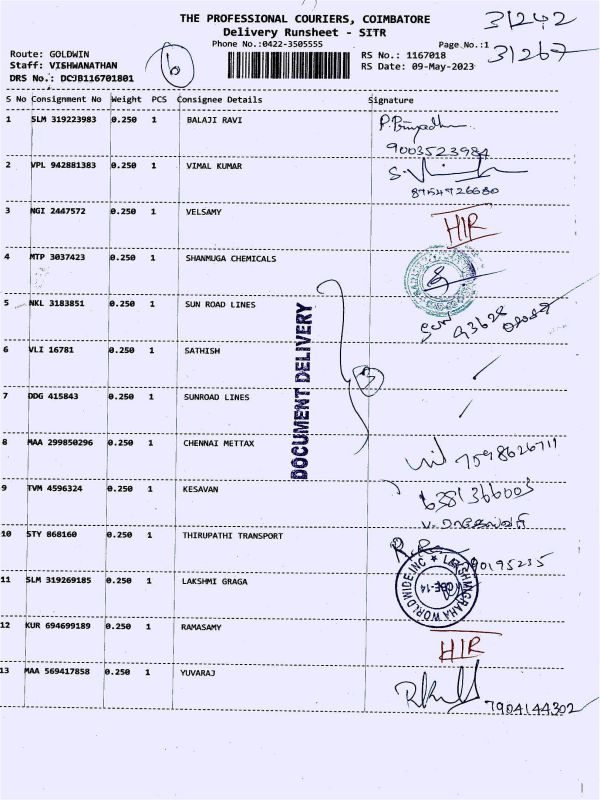 THE PROFESSIONAL COURIERS, COIMBATORE
Delivery Runsheet - SITR
Phone No.:0422-3505555
Page No.:1
31242
31267
Route: GOLDWIN
Staff: VISHWANATHAN
DRS No.: DCJB116701801
6
RS No.: 1167018
RS Date: 09-May-2023
S No Consignment No Weight PCS Consignee Details Signature
1 SLM 319223983 0.250 1 BALAJI RAVI
9003523984
2 VPL 942881383 0.250 1 VIMAL KUMAR
8954926680
3 NGI 2447572 0.250 1 VELSAMY HIR
4 MTP 3037423 0.250 1 SHANMUGA CHEMICALS
5 NKL 3183851 0.250 1 SUN ROAD LINES
6 VLI 16781 0.250 1 SATHISH
7 DDG 415843 0.250 1 SUNROAD LINES
DOCUMENT DELIVERY
3
8 MAA 299850296 0.250 1 CHENNAI METTAX
7598626711
9 TVM 4596324 0.250 1 KESAVAN 6381366003
10 STY 868160 0.250 1 THIRUPATHI TRANSPORT
11 SLM 319269185 0.250 1 LAKSHMI GRAGA
LAKSHMIGRAHA WORLDWIDE INC
CBE-14
12 KUR 694699189 0.250 1 RAMASAMY HIR
13 MAA 569417858 0.250 1 YUVARAJ
7904144302